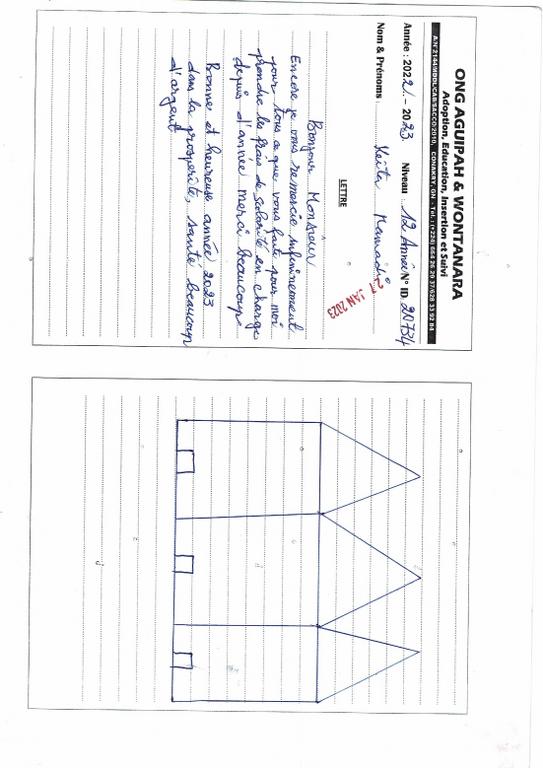 ONG AGUIPAH & WONTANARA
Adoption, Education, Insertion et Suivi
Année : 2022 - 2023 Niveau : 12 Année N° ID 20734
Nom & Prénoms : Keita Mamadi
27 JAN 2023
LETTRE
Bonjour Monsieur
Encore je vous remercie infiniment
pour tous ce que vous faite pour moi
prendre les frais de solarité en charge
depuis d'année merci beaucoup
Bonne et heureuse année 2023
dans la prosperité, santé beaucoup
d'argent